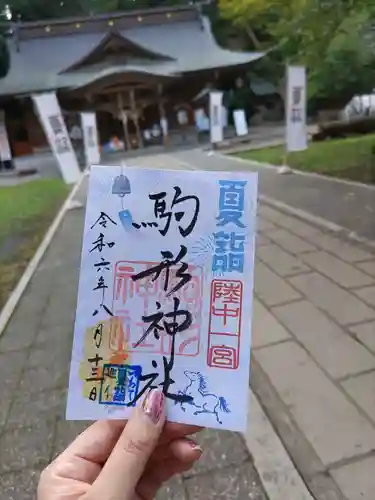 夏詣
陸中一宮
駒形神社
令和六年八月十三日